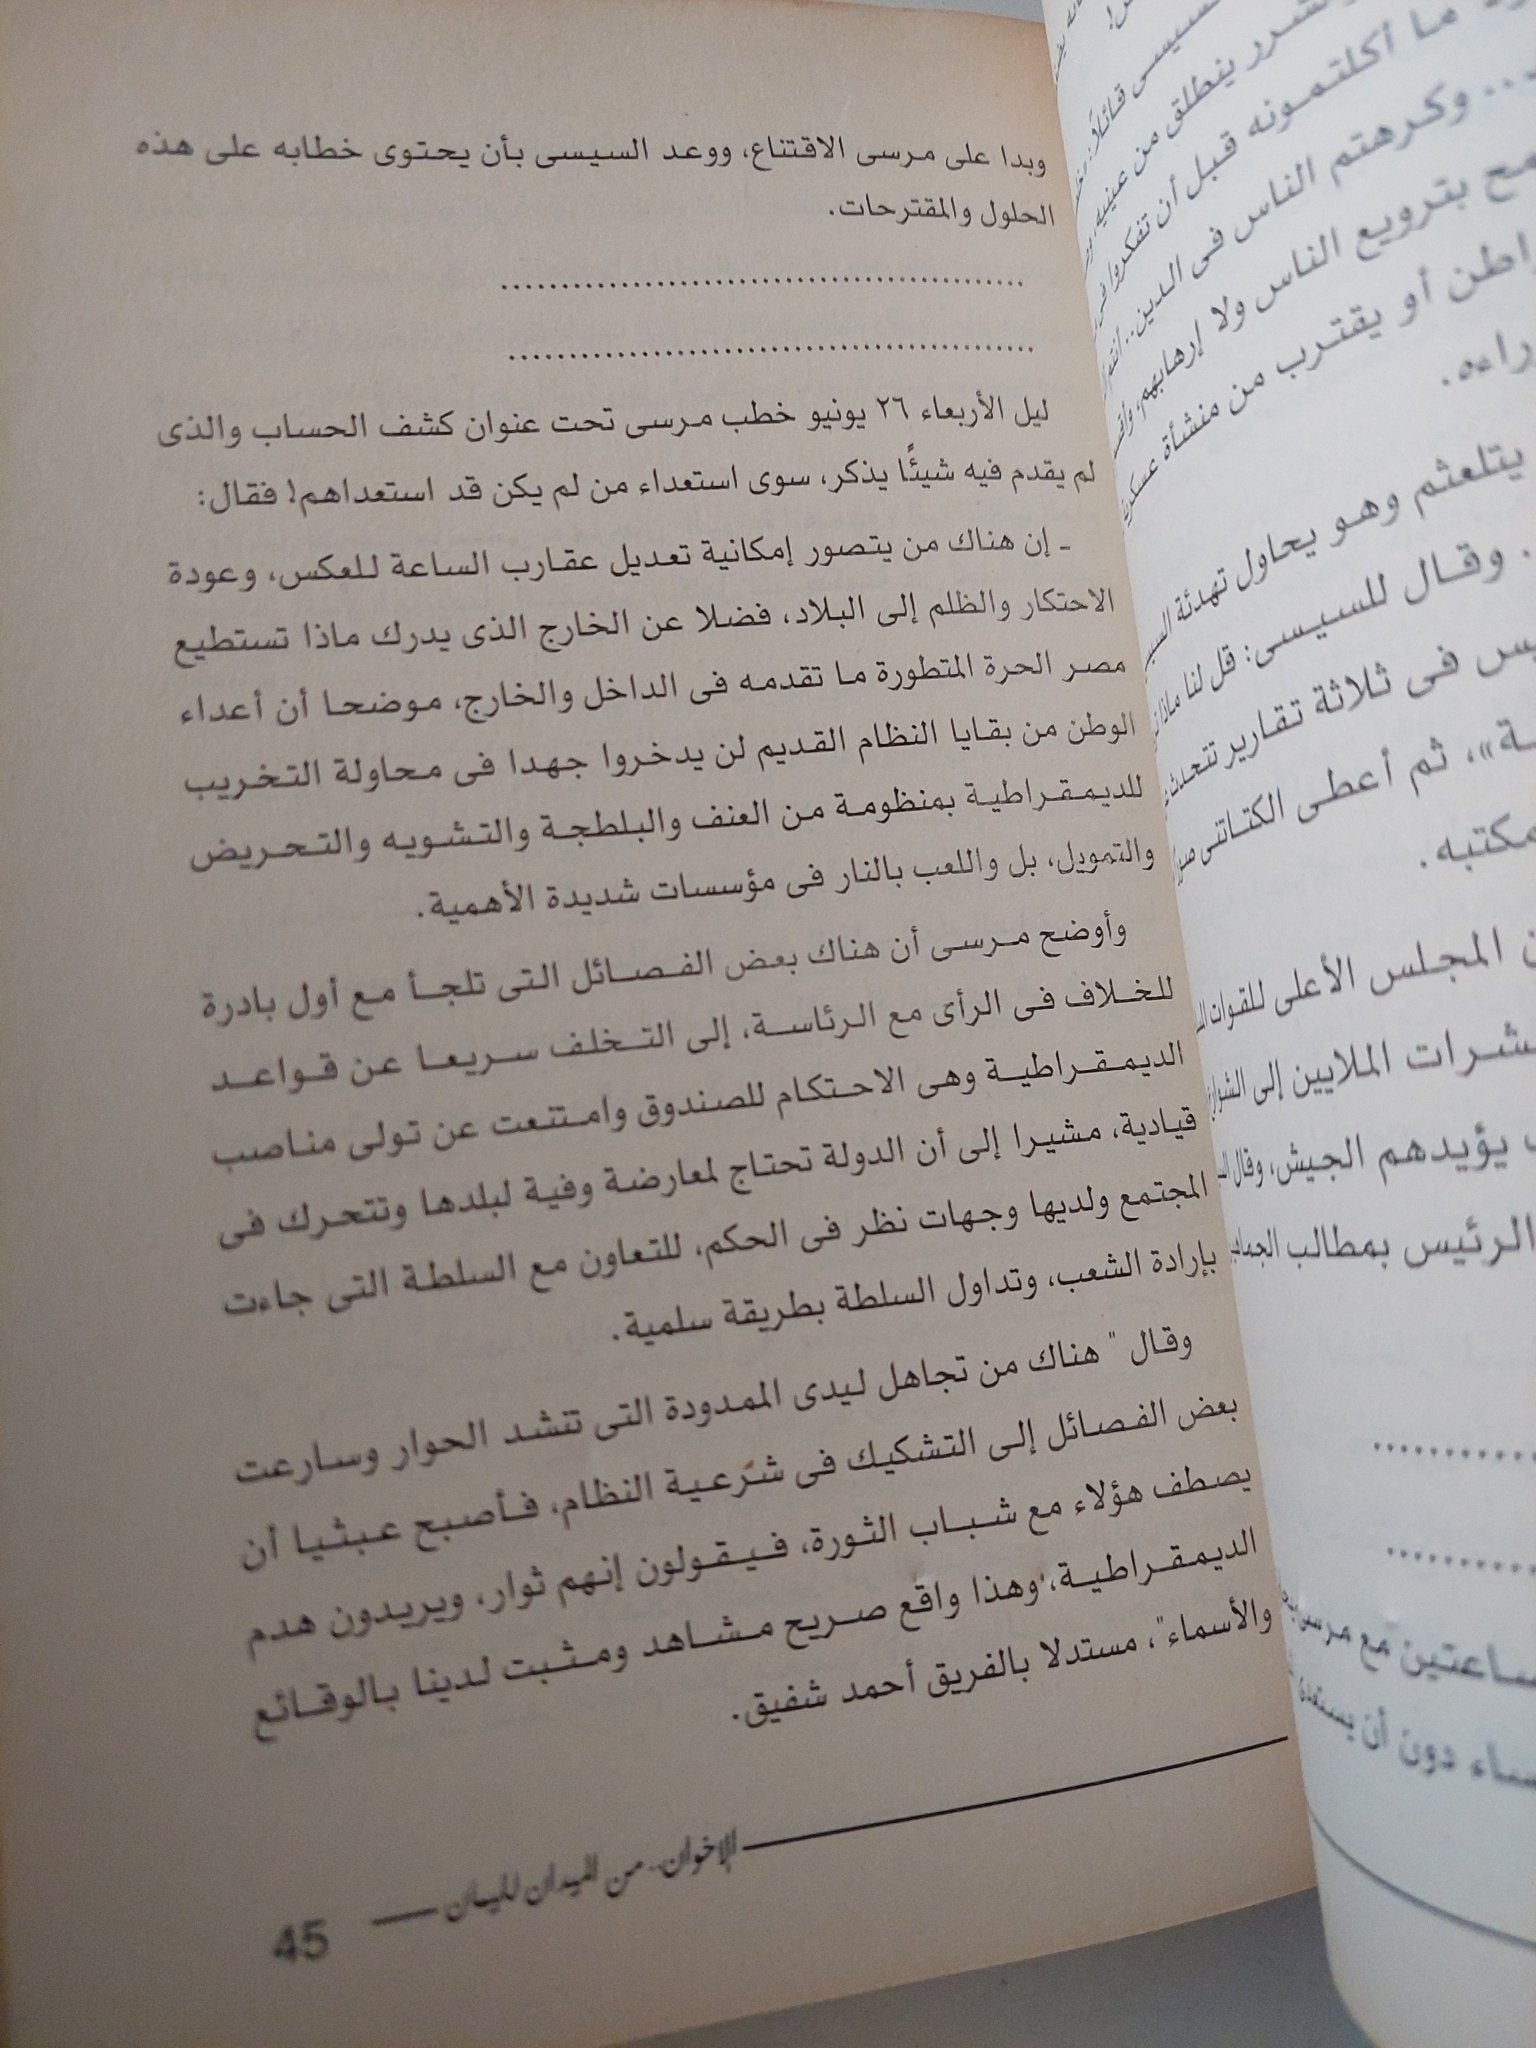 وبدا على مرسى الاقتناع، ووعد السيسى بأن يحتوى خطابه على هذه
الحلول والمقترحات.
..................................................
..................................................
ليل الأربعاء ٢٦ يونيو خطب مرسى تحت عنوان كشف الحساب والذى
لم يقدم فيه شيئًا يذكر، سوى استعداء من لم يكن قد استعداهم! فقال:
ـ إن هناك من يتصور إمكانية تعديل عقارب الساعة للعكس، وعودة
الاحتكار والظلم إلى البلاد، فضلا عن الخارج الذى يدرك ماذا تستطيع
مصر الحرة المتطورة ما تقدمه فى الداخل والخارج، موضحا أن أعداء
الوطن من بقايا النظام القديم لن يدخروا جهدا فى محاولة التخريب
للديمقراطية بمنظومة من العنف والبلطجة والتشويه والتحريض
والتمويل، بل واللعب بالنار فى مؤسسات شديدة الأهمية.
وأوضح مرسى أن هناك بعض الفصائل التى تلجأ مع أول بادرة
للخلاف فى الرأى مع الرئاسة، إلى التخلف سريعا عن قواعد
الديمقراطية وهى الاحتكام للصندوق وامتنعت عن تولى مناصب
قيادية، مشيرا إلى أن الدولة تحتاج لمعارضة وفية لبلدها وتتحرك فى
المجتمع ولديها وجهات نظر فى الحكم، للتعاون مع السلطة التى جاءت
بإرادة الشعب، وتداول السلطة بطريقة سلمية.
وقال " هناك من تجاهل ليدى الممدودة التى تنشد الحوار وسارعت
بعض الفصائل إلى التشكيك فى شرعية النظام، فأصبح عبثيا أن
يصطف هؤلاء مع شباب الثورة، فيقولون إنهم ثوار، ويريدون هدم
الديمقراطية، وهذا واقع صريح مشاهد ومثبت لدينا بالوقائع
والأسماء"، مستدلا بالفريق أحمد شفيق.
الإخوان.. من الميدان لليمان
45
ما أكلتمونه قبل أن تفكروا فى
وكرهتم الناس فى الدين.. أنتم
بترويع الناس ولا إرهابهم،
أو يقترب من منشأة عسكرية
يتلعثم وهو يحاول تهدئة
وقال للسيسى: قل لنا ماذا
فى ثلاثة تقارير تتحدث
ثم أعطى الكتاتنى
مكتبه.
المجلس الأعلى للقوات
الملايين إلى
يؤيدهم الجيش، وقال
الرئيس بمطالب
مع مرسى
دون أن